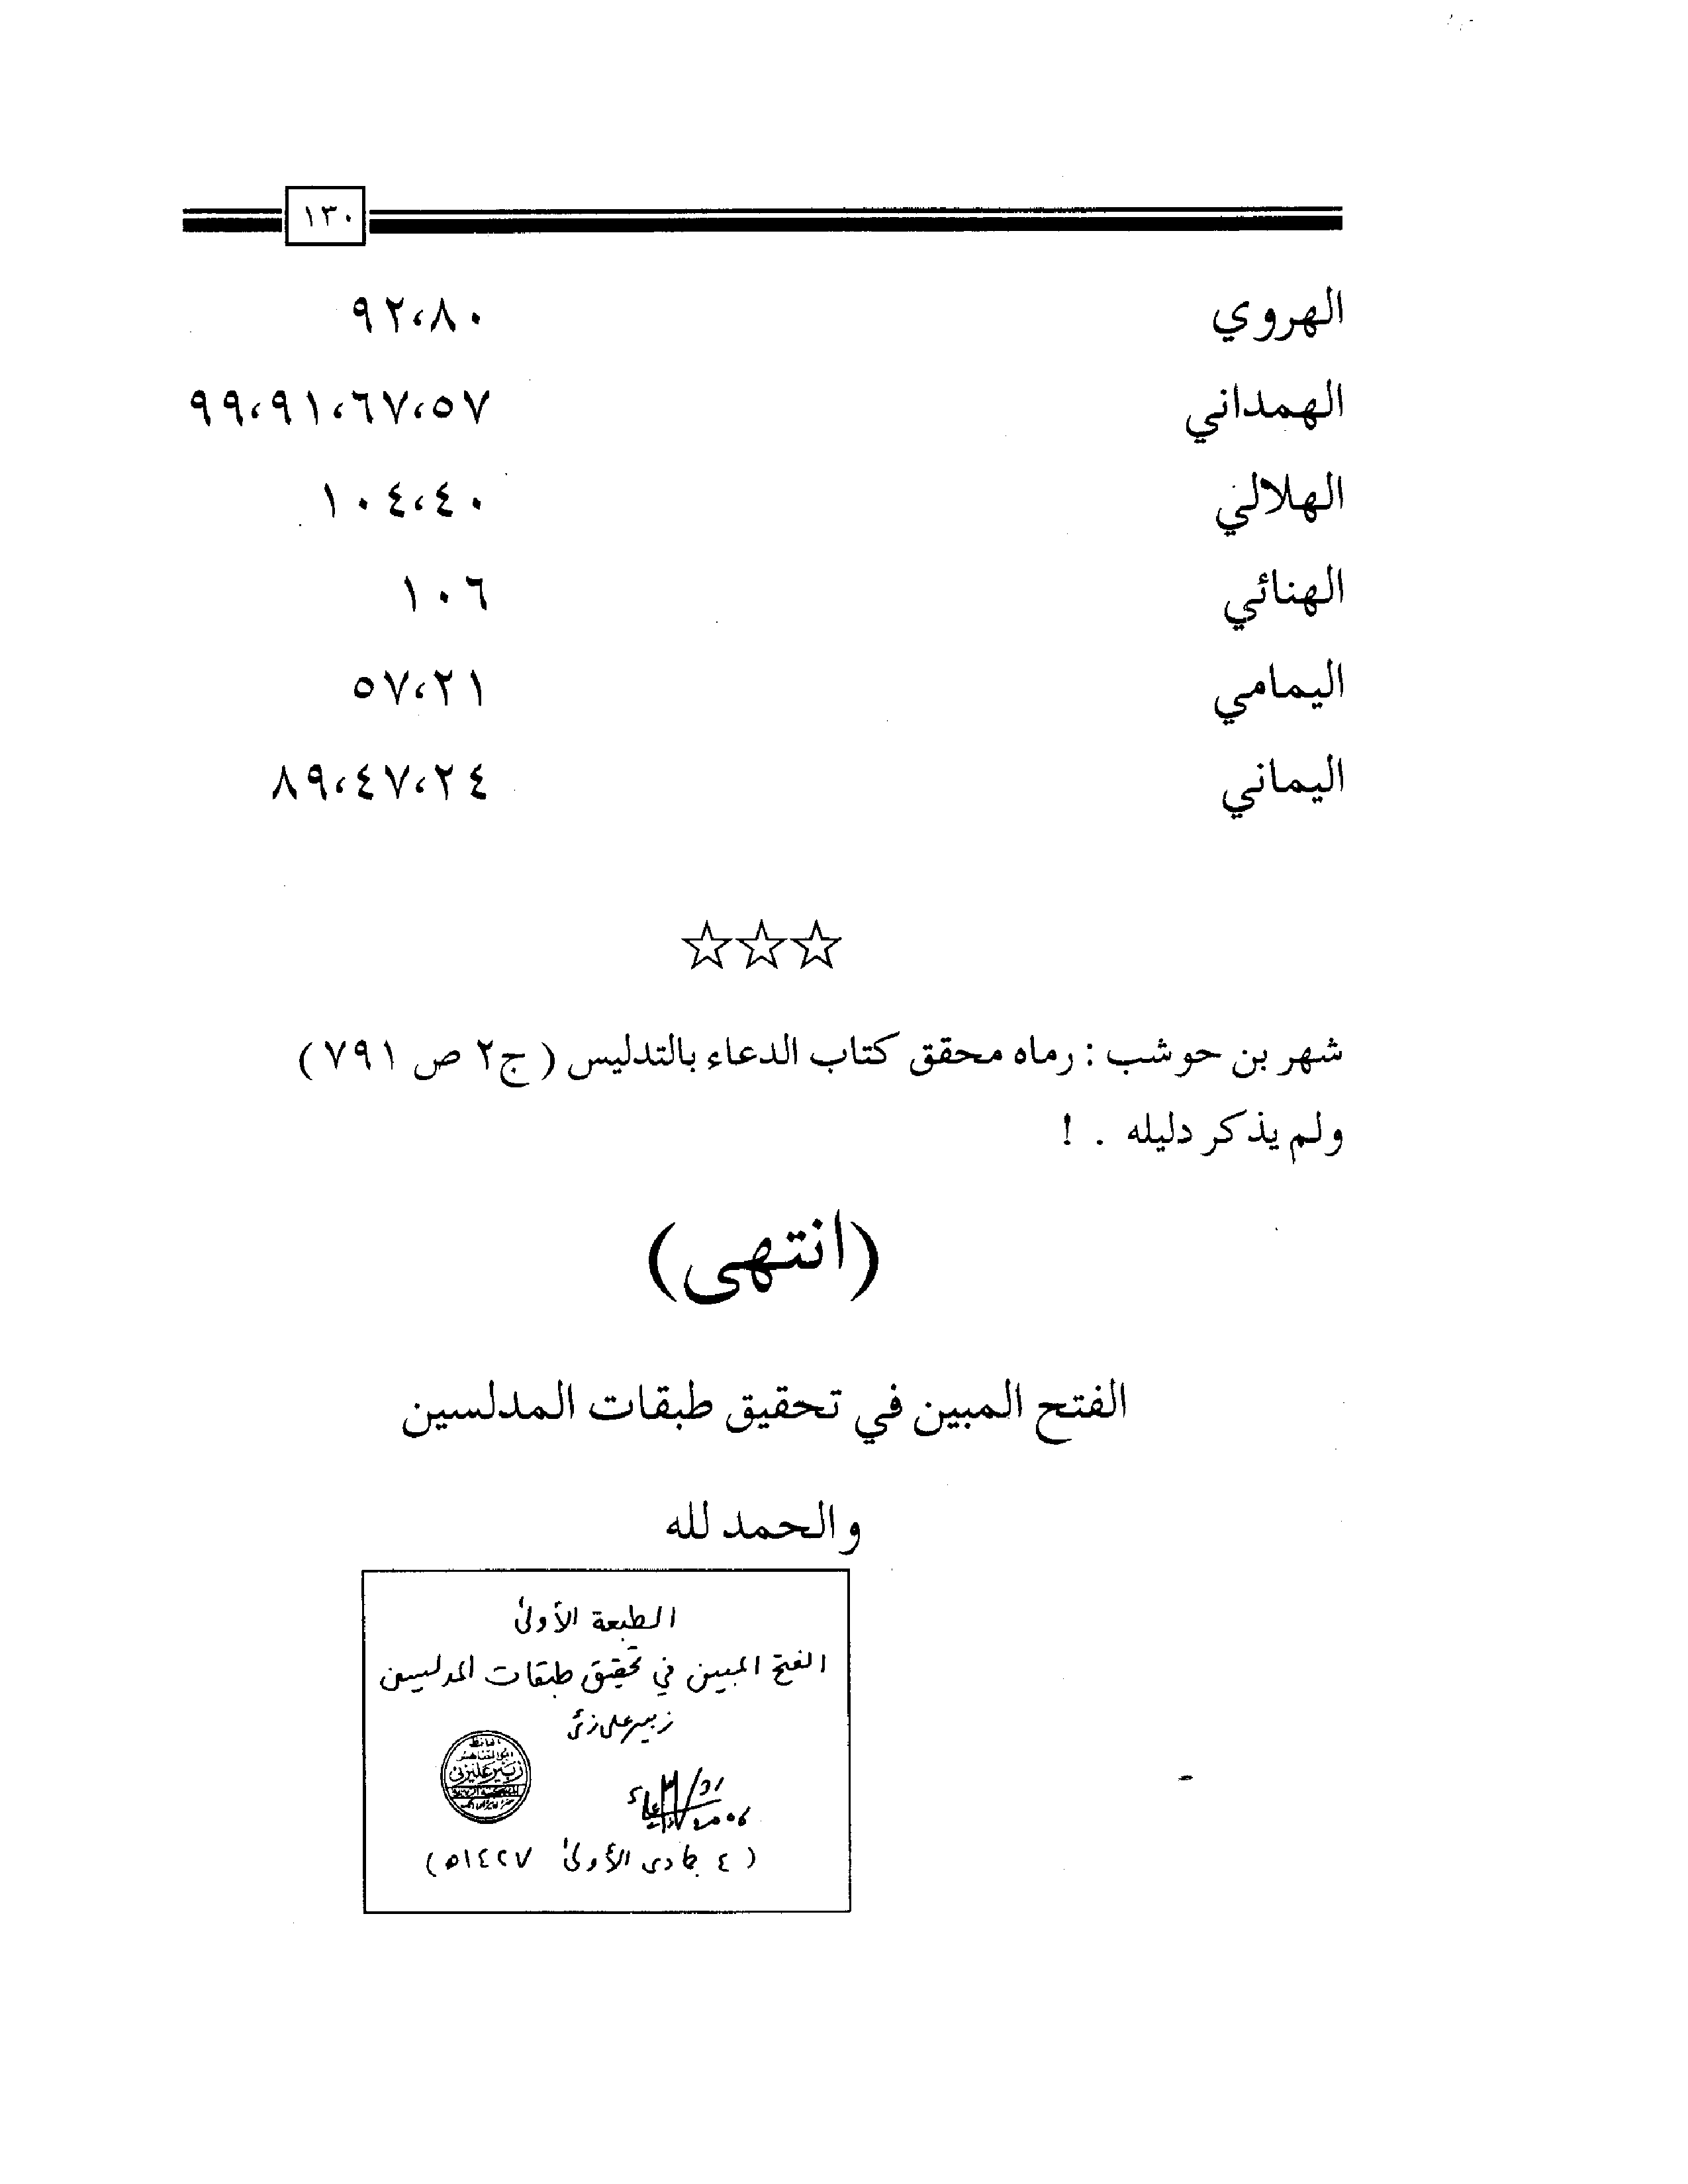 ١٣٠
الهروي ٩٢،٨٠
الهمداني ٩٩،٩١،٦٧،٥٧
الهلالي ١٠٤،٤٠
الهنائي ١٠٦
اليمامي ٥٧،٢١
اليماني ٨٩،٤٧،٢٤
☆☆☆
شهر بن حوشب : رماه محقق كتاب الدعاء بالتدليس ( ج٢ ص ٧٩١)
ولم يذكر دليله . !
(انتهى)
الفتح المبين في تحقيق طبقات المدلسين
والحمد لله
الطبعة الأولىٰ
الفتح المبين في تحقيق طبقات المدلسين
زبير على زئى
زبير عليزئي
( ٤ جمادى الأولىٰ ١٤٢٧ه)